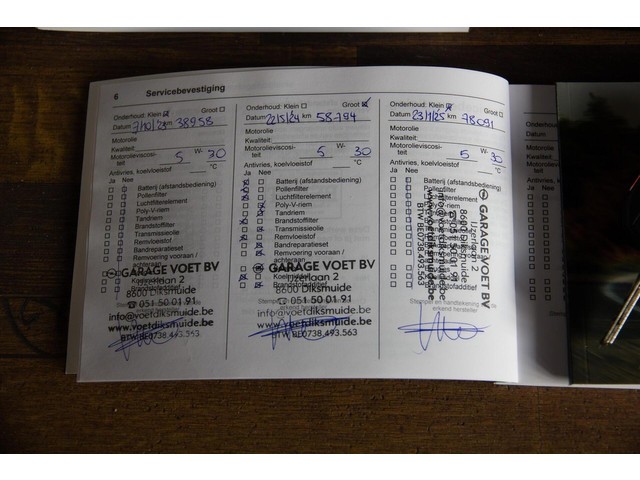 6 Servicebevestiging
Onderhoud: Klein Groot
Datum 7/10/23 km 38958
Motorolie
Kwaliteit:
Motorolieviscosi-
teit 5 W- 30
Antivries, koelvloeistof °C
Ja Nee
Batterij (afstandsbediening)
Pollenfilter
Luchtfilterelement
Poly-V-riem
Tandriem
Brandstoffilter
Transmissieolie
Remvloeistof
Bandreparatieset
Remvoering vooraan /
achteraan
GARAGE VOET BV
IJzerlaan 2
8600 Diksmuide
051 50 01 91
info@voetdiksmuide.be
www.voetdiksmuide.be
BTW BE0738.493.563
Onderhoud: Klein Groot
Datum 22/5/24 km 58794
Motorolie
Kwaliteit:
Motorolieviscosi-
teit 5 W- 30
Antivries, koelvloeistof °C
Ja Nee
Batterij (afstandsbediening)
Pollenfilter
Luchtfilterelement
Poly-V-riem
Tandriem
Brandstoffilter
Transmissieolie
Remvloeistof
Bandreparatieset
Remvoering vooraan /
achteraan
GARAGE VOET BV
IJzerlaan 2
8600 Diksmuide
051 50 01 91
info@voetdiksmuide.be
www.voetdiksmuide.be
BTW BE0738.493.563
Onderhoud: Klein Groot
Datum 23/1/25 km 78091
Motorolie
Kwaliteit:
Motorolieviscosi-
teit 5 W- 30
Antivries, koelvloeistof °C
Ja Nee
Batterij (afstandsbediening)
Pollenfilter
Luchtfilterelement
Poly-V-riem
Tandriem
Brandstoffilter
Transmissieolie
Remvloeistof
Bandreparatieset
Remvoering
achteraan
Koelvloeistof
Brandstofadditief
Stempel en handtekening
erkend hersteller
GARAGE VOET BV
IJzerlaan 2
8600 Diksmuide
051 50 01 91
info@voetdiksmuide.be
www.voetdiksmuide.be
BTW BE0738.493.563
Onderhoud: K
Datum
Motorolie
Kwaliteit:
teit
Antivries, k
Ja Nee